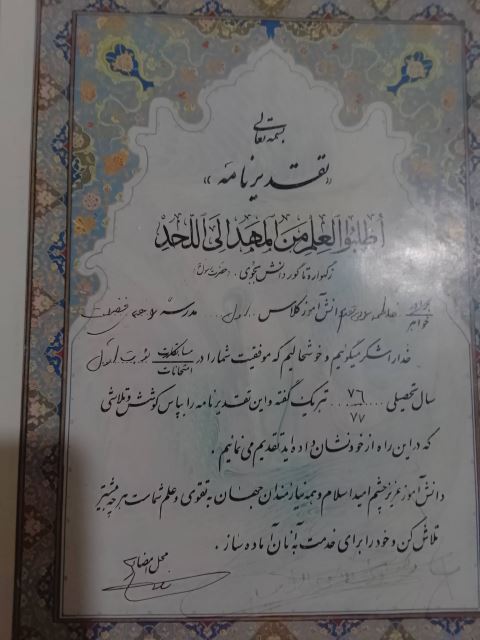 بسمه تعالی
«تقدیرنامه»
اُطْلُبُوا العِلْمَ مِنَ المَهْدِ اِلَی اللَّحْدِ
زگهواره تا گور دانش بجوی . (حضرت رسول)
برادر
خواهر فاطمه دانش آموز کلاس ... اول ... مدرسه
خدا را شکر میگوئیم و خوشحالیم که موفقیت شما را در مسابقات
امتحانات اول
سال تحصیلی ... ۷۶
۷۷ ... تبریک گفته و این تقدیرنامه را بپاس کوشش و تلاشی
که در این راه از خود نشان داده اید تقدیم می نمائیم .
دانش آموز عزیز چشم امید اسلام و همه نیازمندان جهان به تقوی و علم شماست هرچه بیشتر
تلاش کن و خود را برای خدمت به آنان آماده ساز .
محل امضاء